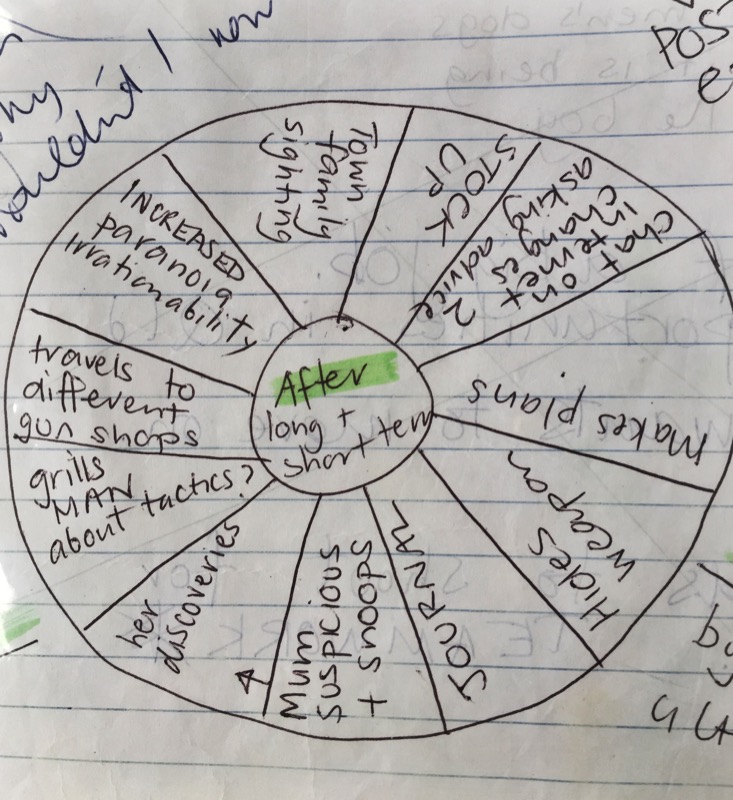 I now
why
shouldn't
POS
After
long +
short term
Town
family
sighting
STOCK
UP
chat on
internet 2
changes
asking advice
makes plans
Hides
weapon
JOURNAL
Mum
suspicious
+ snoops
her
discoveries
grills
MAN
about tactics?
travels to
different
gun shops
INCREASED
paranoia
irrationability